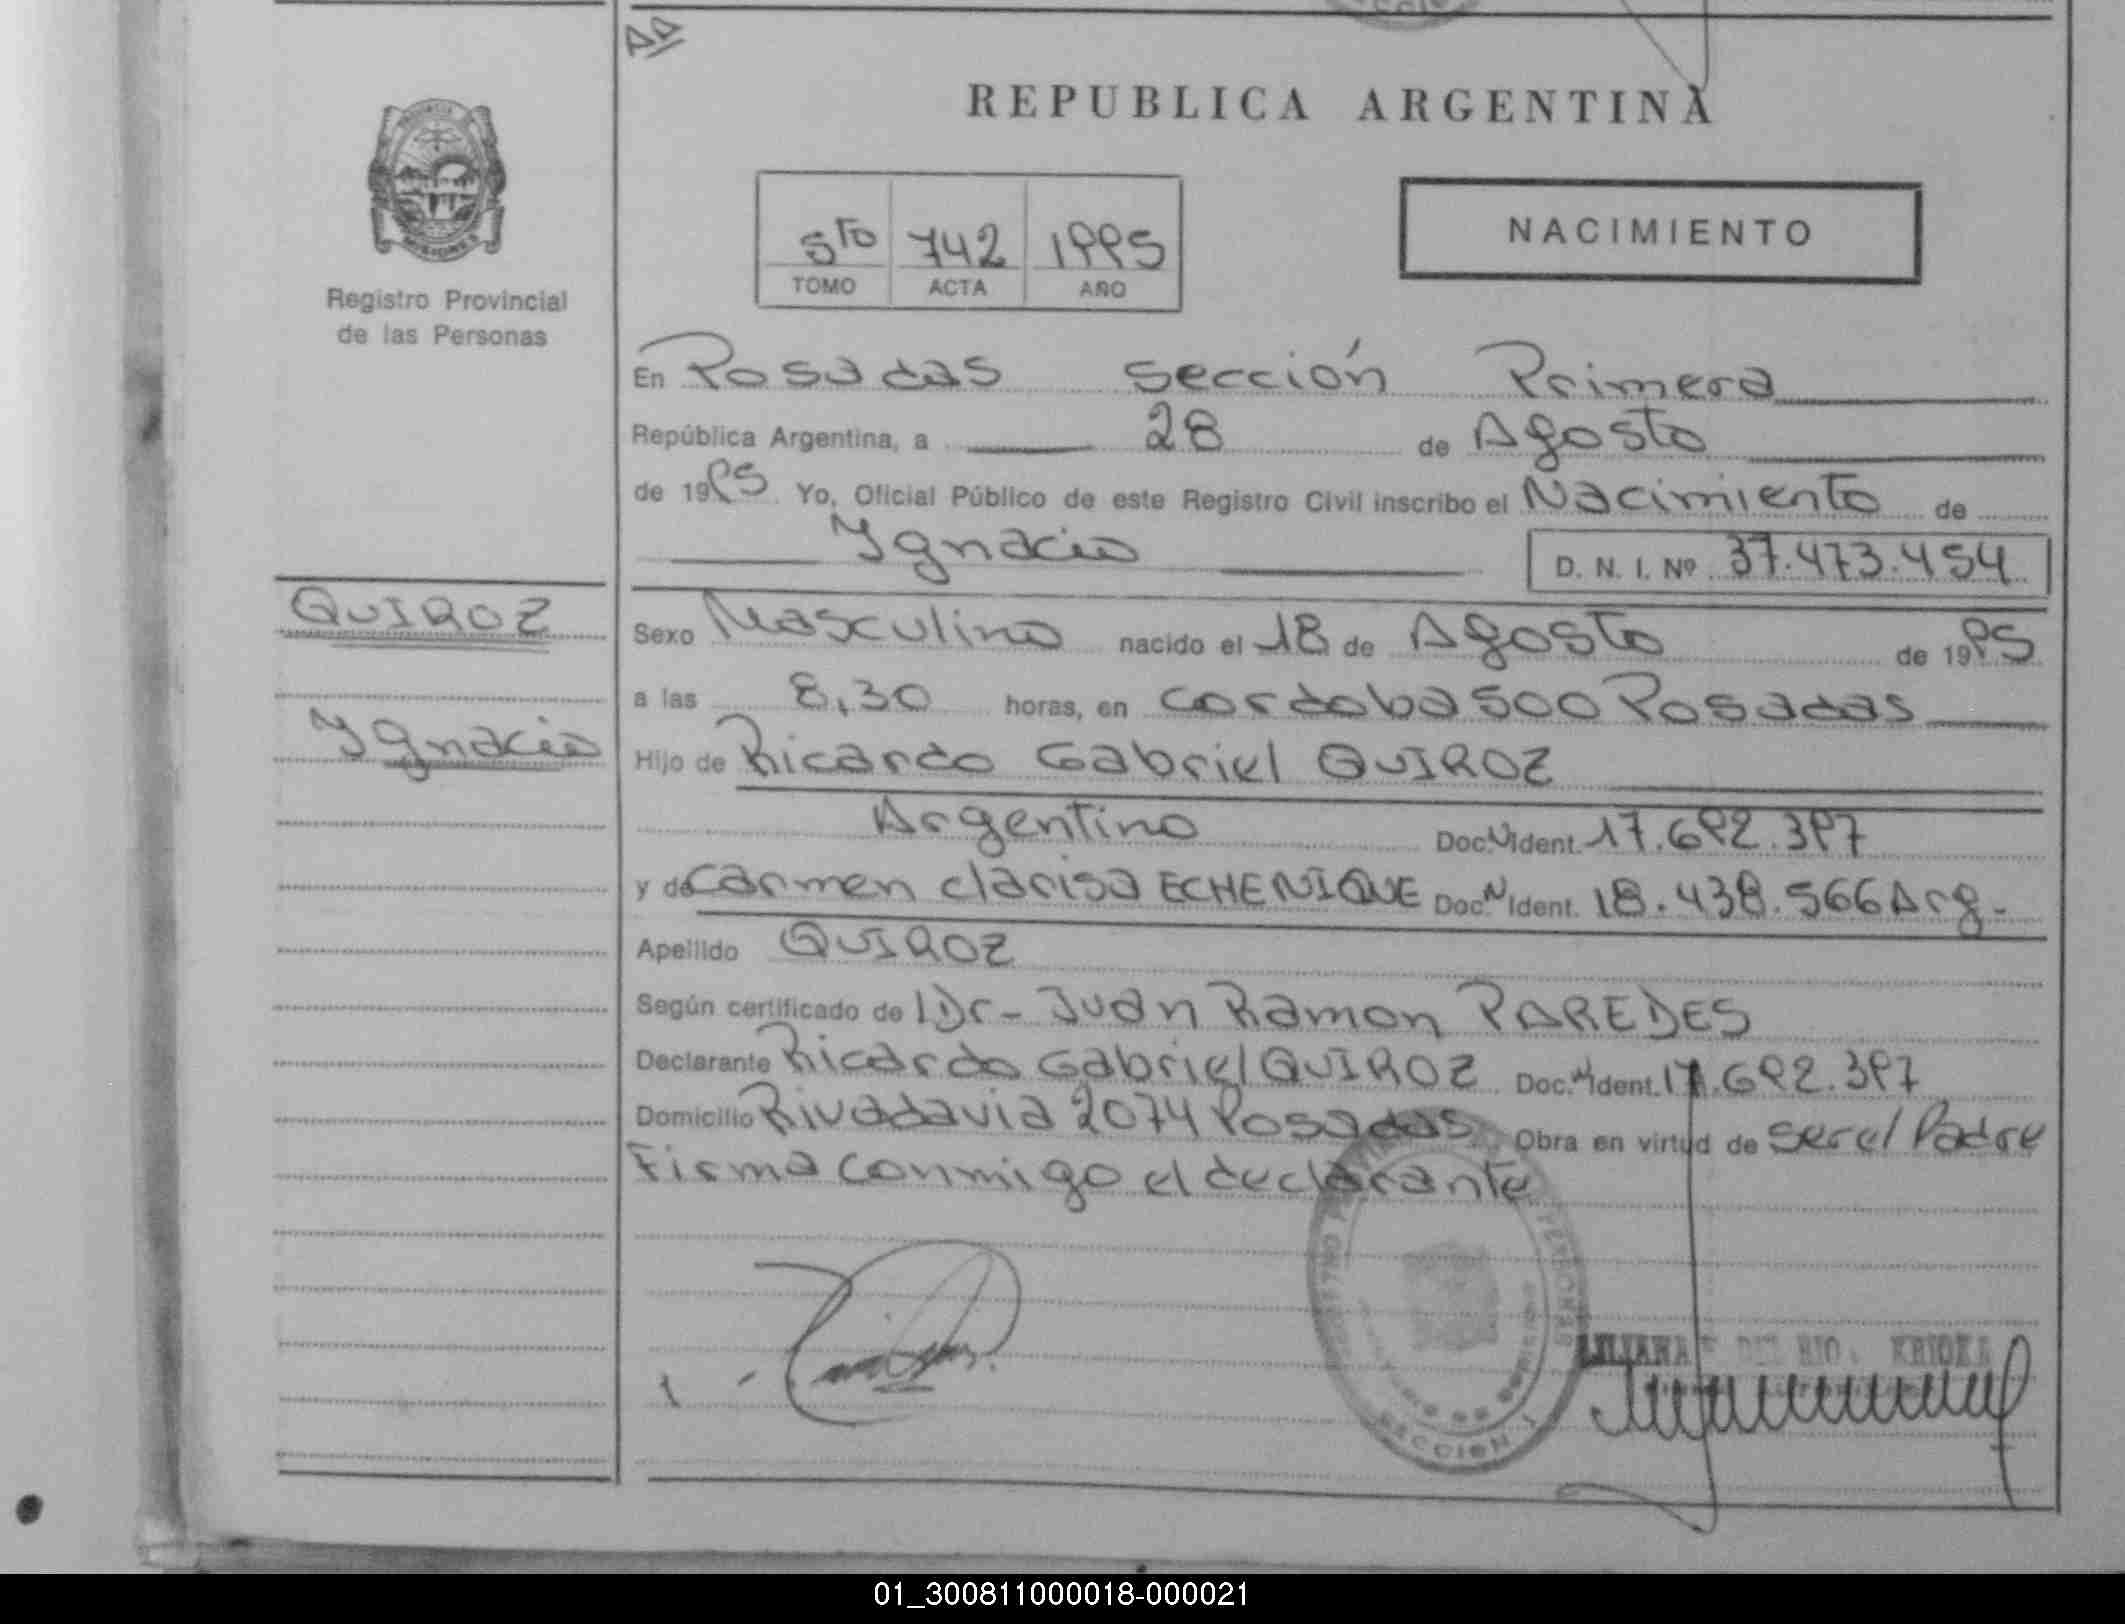 REPUBLICA ARGENTINA
NACIMIENTO
5to 742 1995
TOMO ACTA AÑO
Registro Provincial
de las Personas
En Posadas sección Primera
República Argentina, a 28 de Agosto
de 1995 Yo, Oficial Público de este Registro Civil inscribo el Nacimiento de
Ygnacio
D. N. I. Nº 37.473.454
QUIROZ
Ygnacio
Sexo Masculino nacido el 18 de Agosto de 1995
a las 8,30 horas, en Cordoba 500 Posadas
Hijo de Ricardo Gabriel QUIROZ
Argentino Doc. N Ident. 17.692.397
y de Carmen Clarisa ECHENIQUE Doc. N Ident. 18.438.566 Arg.-
Apellido QUIROZ
Según certificado de Dr- Juan Ramon PAREDES
Declarante Ricardo Gabriel QUIROZ Doc. N Ident. 17.692.397
Domicilio Rivadavia 2074 Posadas Obra en virtud de ser el Padre
Firma conmigo el declarante
SECCION 1
DEL RIO
01_300811000018-000021